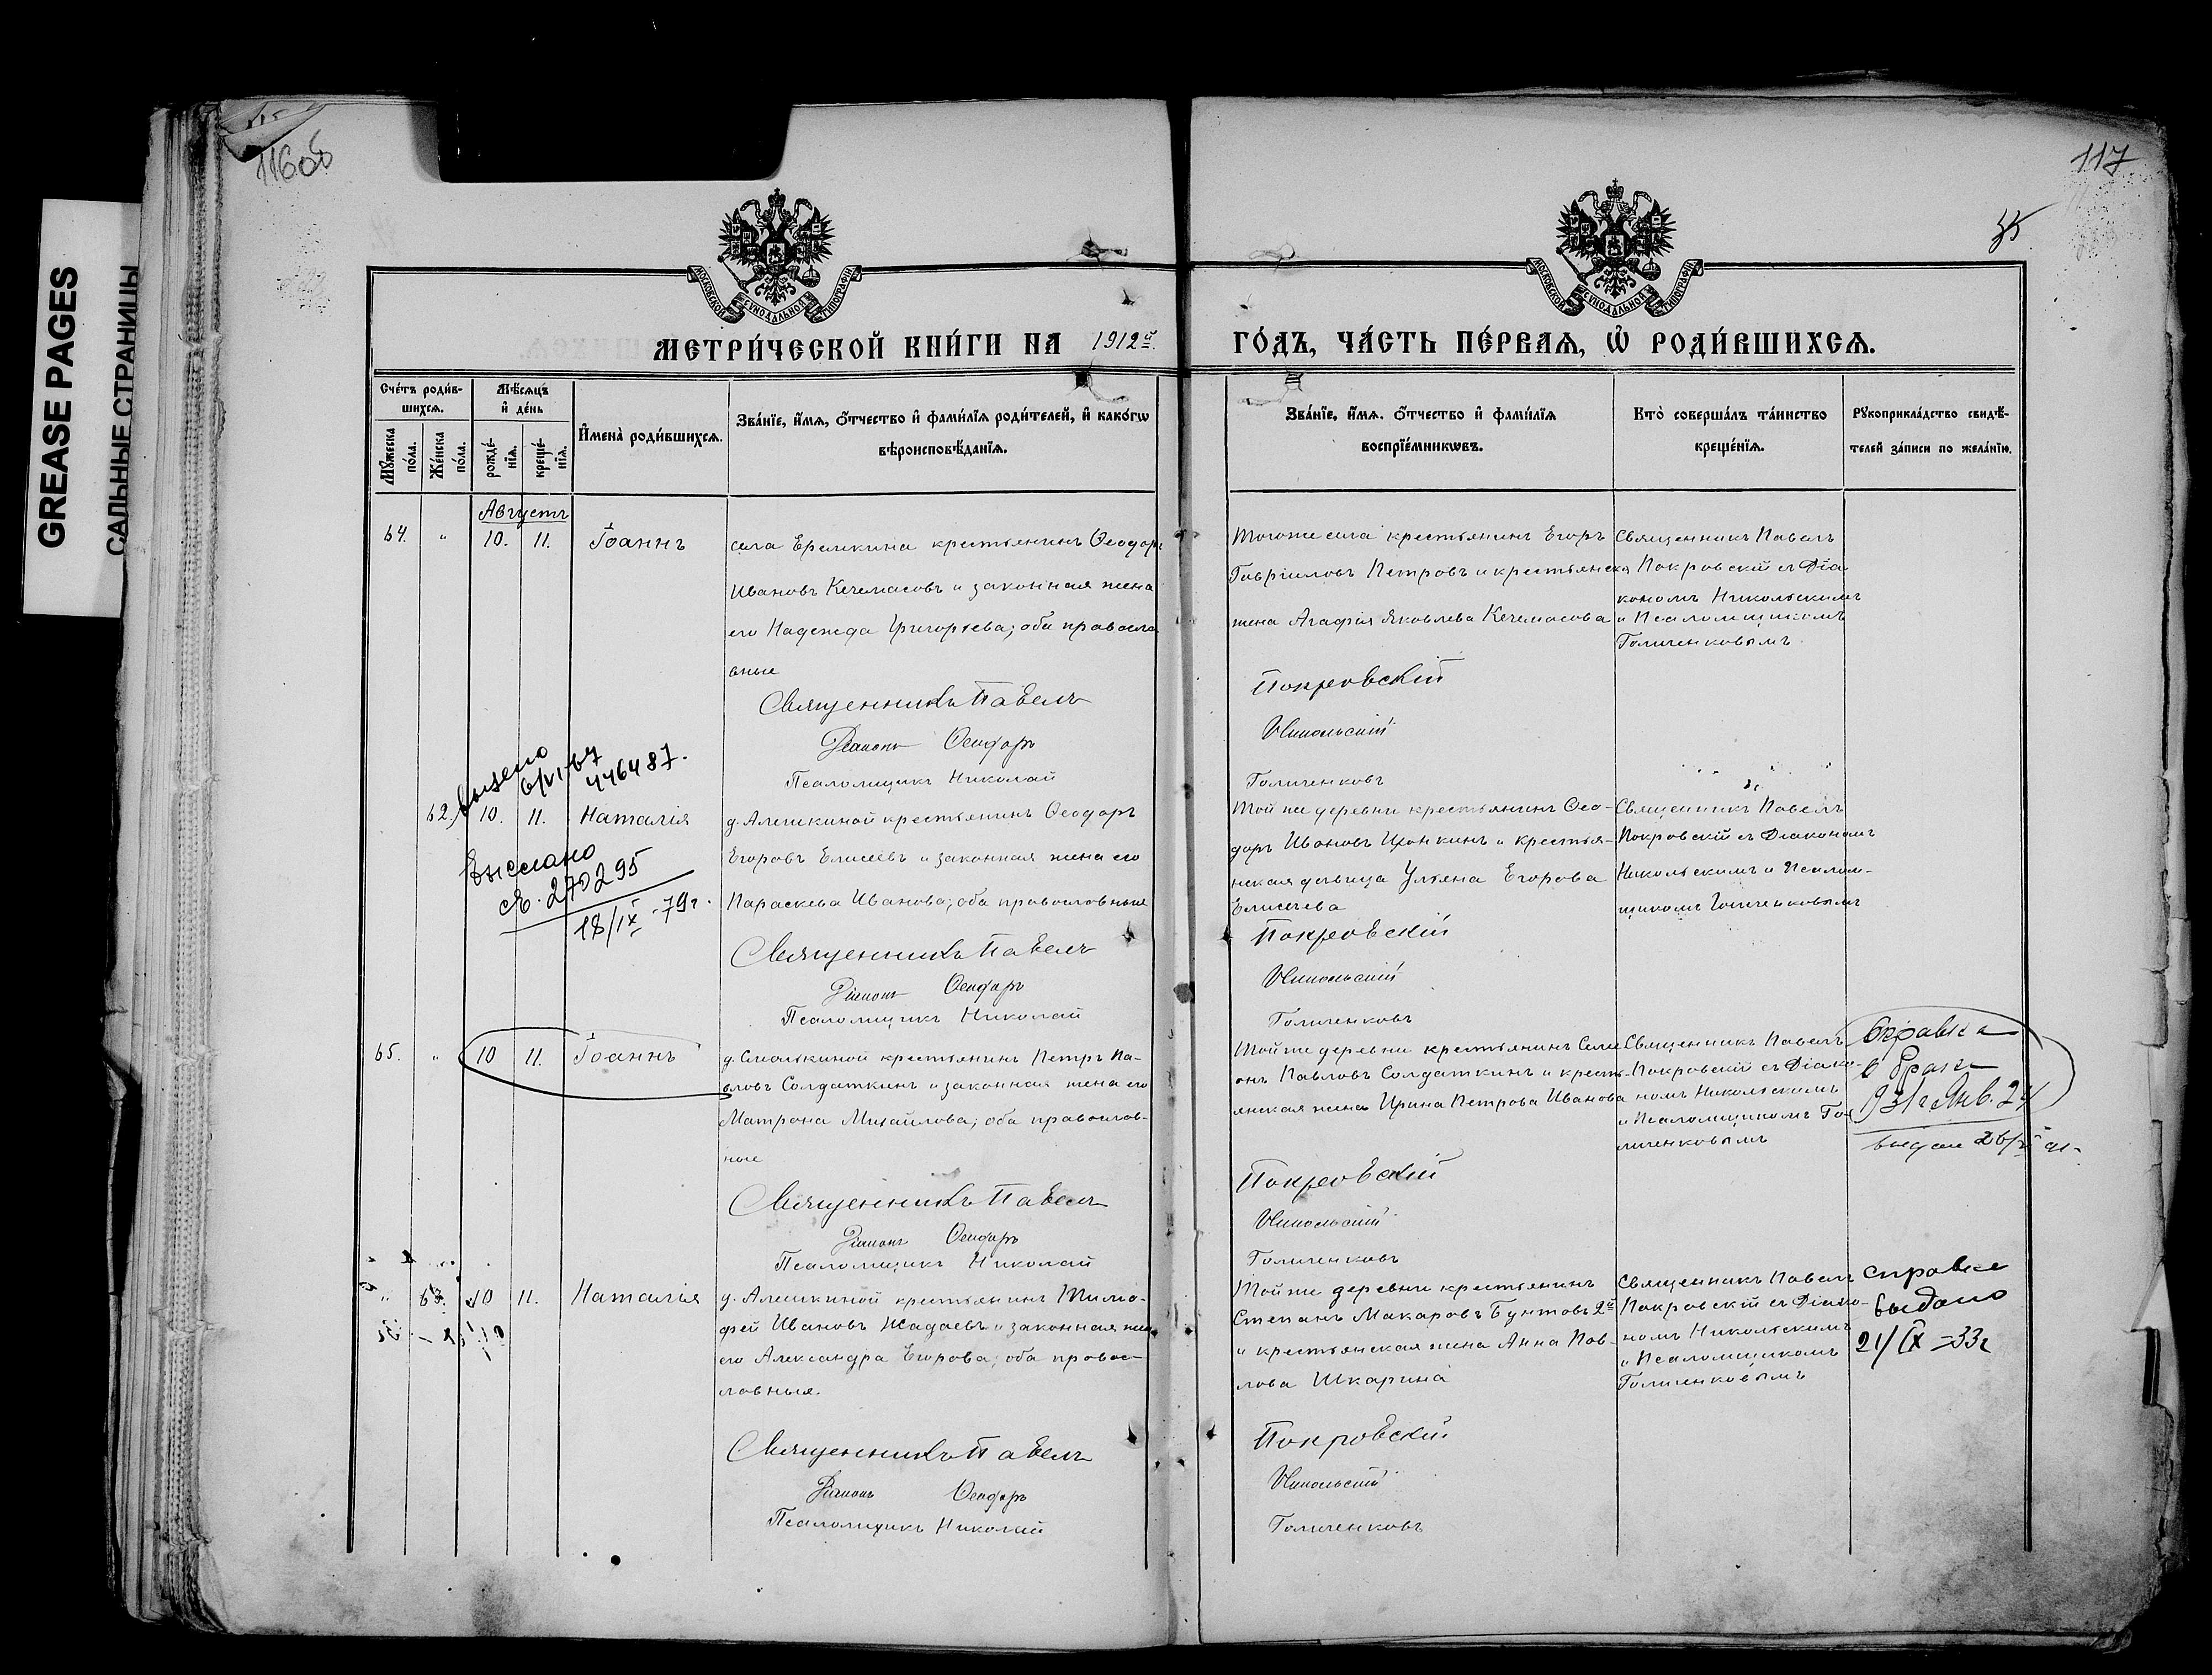 GREASE PAGES
САЛЬНЫЕ СТРАНИЦЫ
116об
117
35
МОСКОВСКОЙ СѴНОДАЛЬНОЙ ТИПОГРАФІИ
МОСКОВСКОЙ СѴНОДАЛЬНОЙ ТИПОГРАФІИ
МЕТРИ́ЧЕСКОЙ КНИ́ГИ НА 1912й
ГО́ДЪ, ЧА́СТЬ ПЕ́РВАѦ, Ѡ҆ РОДИ́ВШИХСѦ.
Сче́тъ роди́в-
шихсѧ.
Мѣ́сѧцъ
и҆ де́нь
Мꙋ́жеска
по́ла.
Же́нска
по́ла.
рожде́-
нїѧ.
креще́-
нїѧ.
И҆мена̀ роди́вшихсѧ.
Зва́нїе, и҆́мѧ, ѻ҆́тчество и҆ фами́лїѧ роди́телей, и҆ како́гѡ
вѣроисповѣ́данїѧ.
Зва́нїе, и҆́мѧ, ѻ҆́тчество и҆ фами́лїѧ
воспрїе́мникѡвъ.
Кто̀ соверша́лъ та́инство
креще́нїѧ.
Рꙋкоприкла́дство свидѣ́-
телей за́писи по жела́нїю.
Августъ
64. " 10. 11. Іоаннъ
села Еремкина крестьянинъ Ѳеодоръ
Ивановъ Кечемасовъ и законная жена
его Надежда Григорьева; оба правосла
вные
Священникъ Павелъ
Діаконъ Ѳеодоръ
Псаломщикъ Николай
Тогоже села крестьянинъ Егоръ
Гавріиловъ Петровъ и крестьянская
жена Агафія Яковлева Кечемасова
Покровскій
Никольскій
Голиченковъ
Священникъ Павелъ
Покровскій съ Діа
кономъ Никольскимъ
и Псаломщикомъ
Голиченковымъ
выдано
6/VI-67
446487.
62. 10. 11. Наталія
Выслано
270295
18/IX-79г.
д. Алешкиной крестьянинъ Ѳеодоръ
Егоровъ Елисѣевъ и законная жена его
Параскева Иванова; оба православные
Священникъ Павелъ
Діаконъ Ѳеодоръ
Псаломщикъ Николай
Той же деревни крестьянинъ Ѳео-
доръ Ивановъ и крестья-
нская дѣвица Ульяна Егорова
Елисѣева
Покровскій
Никольскій
Голиченковъ
Священникъ Павелъ
Покровскій съ Діакономъ
Никольскимъ и Псалом-
щикомъ Голиченковымъ
65. " 10 11. Іоаннъ
д. крестьянинъ Петръ Па-
вловъ Солдаткинъ и законная жена его
Матрона Михайлова; оба православ-
ные
Священникъ Павелъ
Діаконъ Ѳеодоръ
Псаломщикъ Николай
Той же деревни крестьянинъ Семе
онъ Павловъ Солдаткинъ и кресть-
янская жена Ирина Петрова Иванова
Покровскій
Никольскій
Голиченковъ
Священникъ Павелъ
Покровскій съ Діако-
номъ Никольскимъ
и Псаломщикомъ Го-
личенковымъ
Справка
о браке
931г Янв. 24
" 63. 10 11. Наталія
д. Алешкиной крестьянинъ Тимо-
фей Ивановъ Жадаевъ и законная жена
его Александра Егорова; оба правос-
лавные.
Священникъ Павелъ
Діаконъ Ѳеодоръ
Псаломщикъ Николай
Той же деревни крестьянинъ
Степанъ Макаровъ Бунтовъ 2й
и крестьянская жена Анна Пав-
лова Шкарина
Покровскій
Никольскій
Голиченковъ
Священникъ Павелъ
Покровскій съ Діако-
номъ Никольскимъ
и Псаломщикомъ
Голиченковымъ
справка
выдано
21/IX-33г